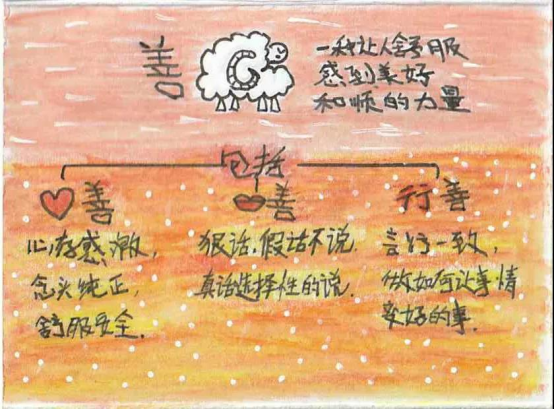 善
一种让人舒服
感到美好
和顺的力量
包括
善
善
行善
心存感激,
念头纯正,
舒服安全.
狠话,假话不说,
真话选择性的说,
言行一致,
做如何让事情
变好的事.